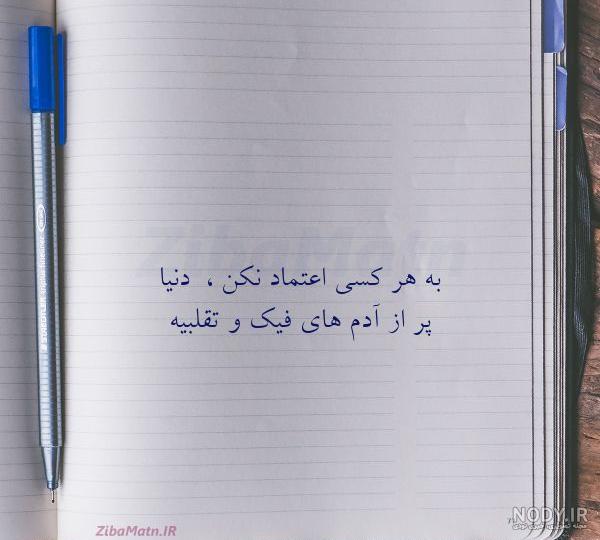 ZibaMatn
به هر کسی اعتماد نکن ، دنیا
پر از آدم های فیک و تقلبیه
ZibaMatn.IR
NODY.IR